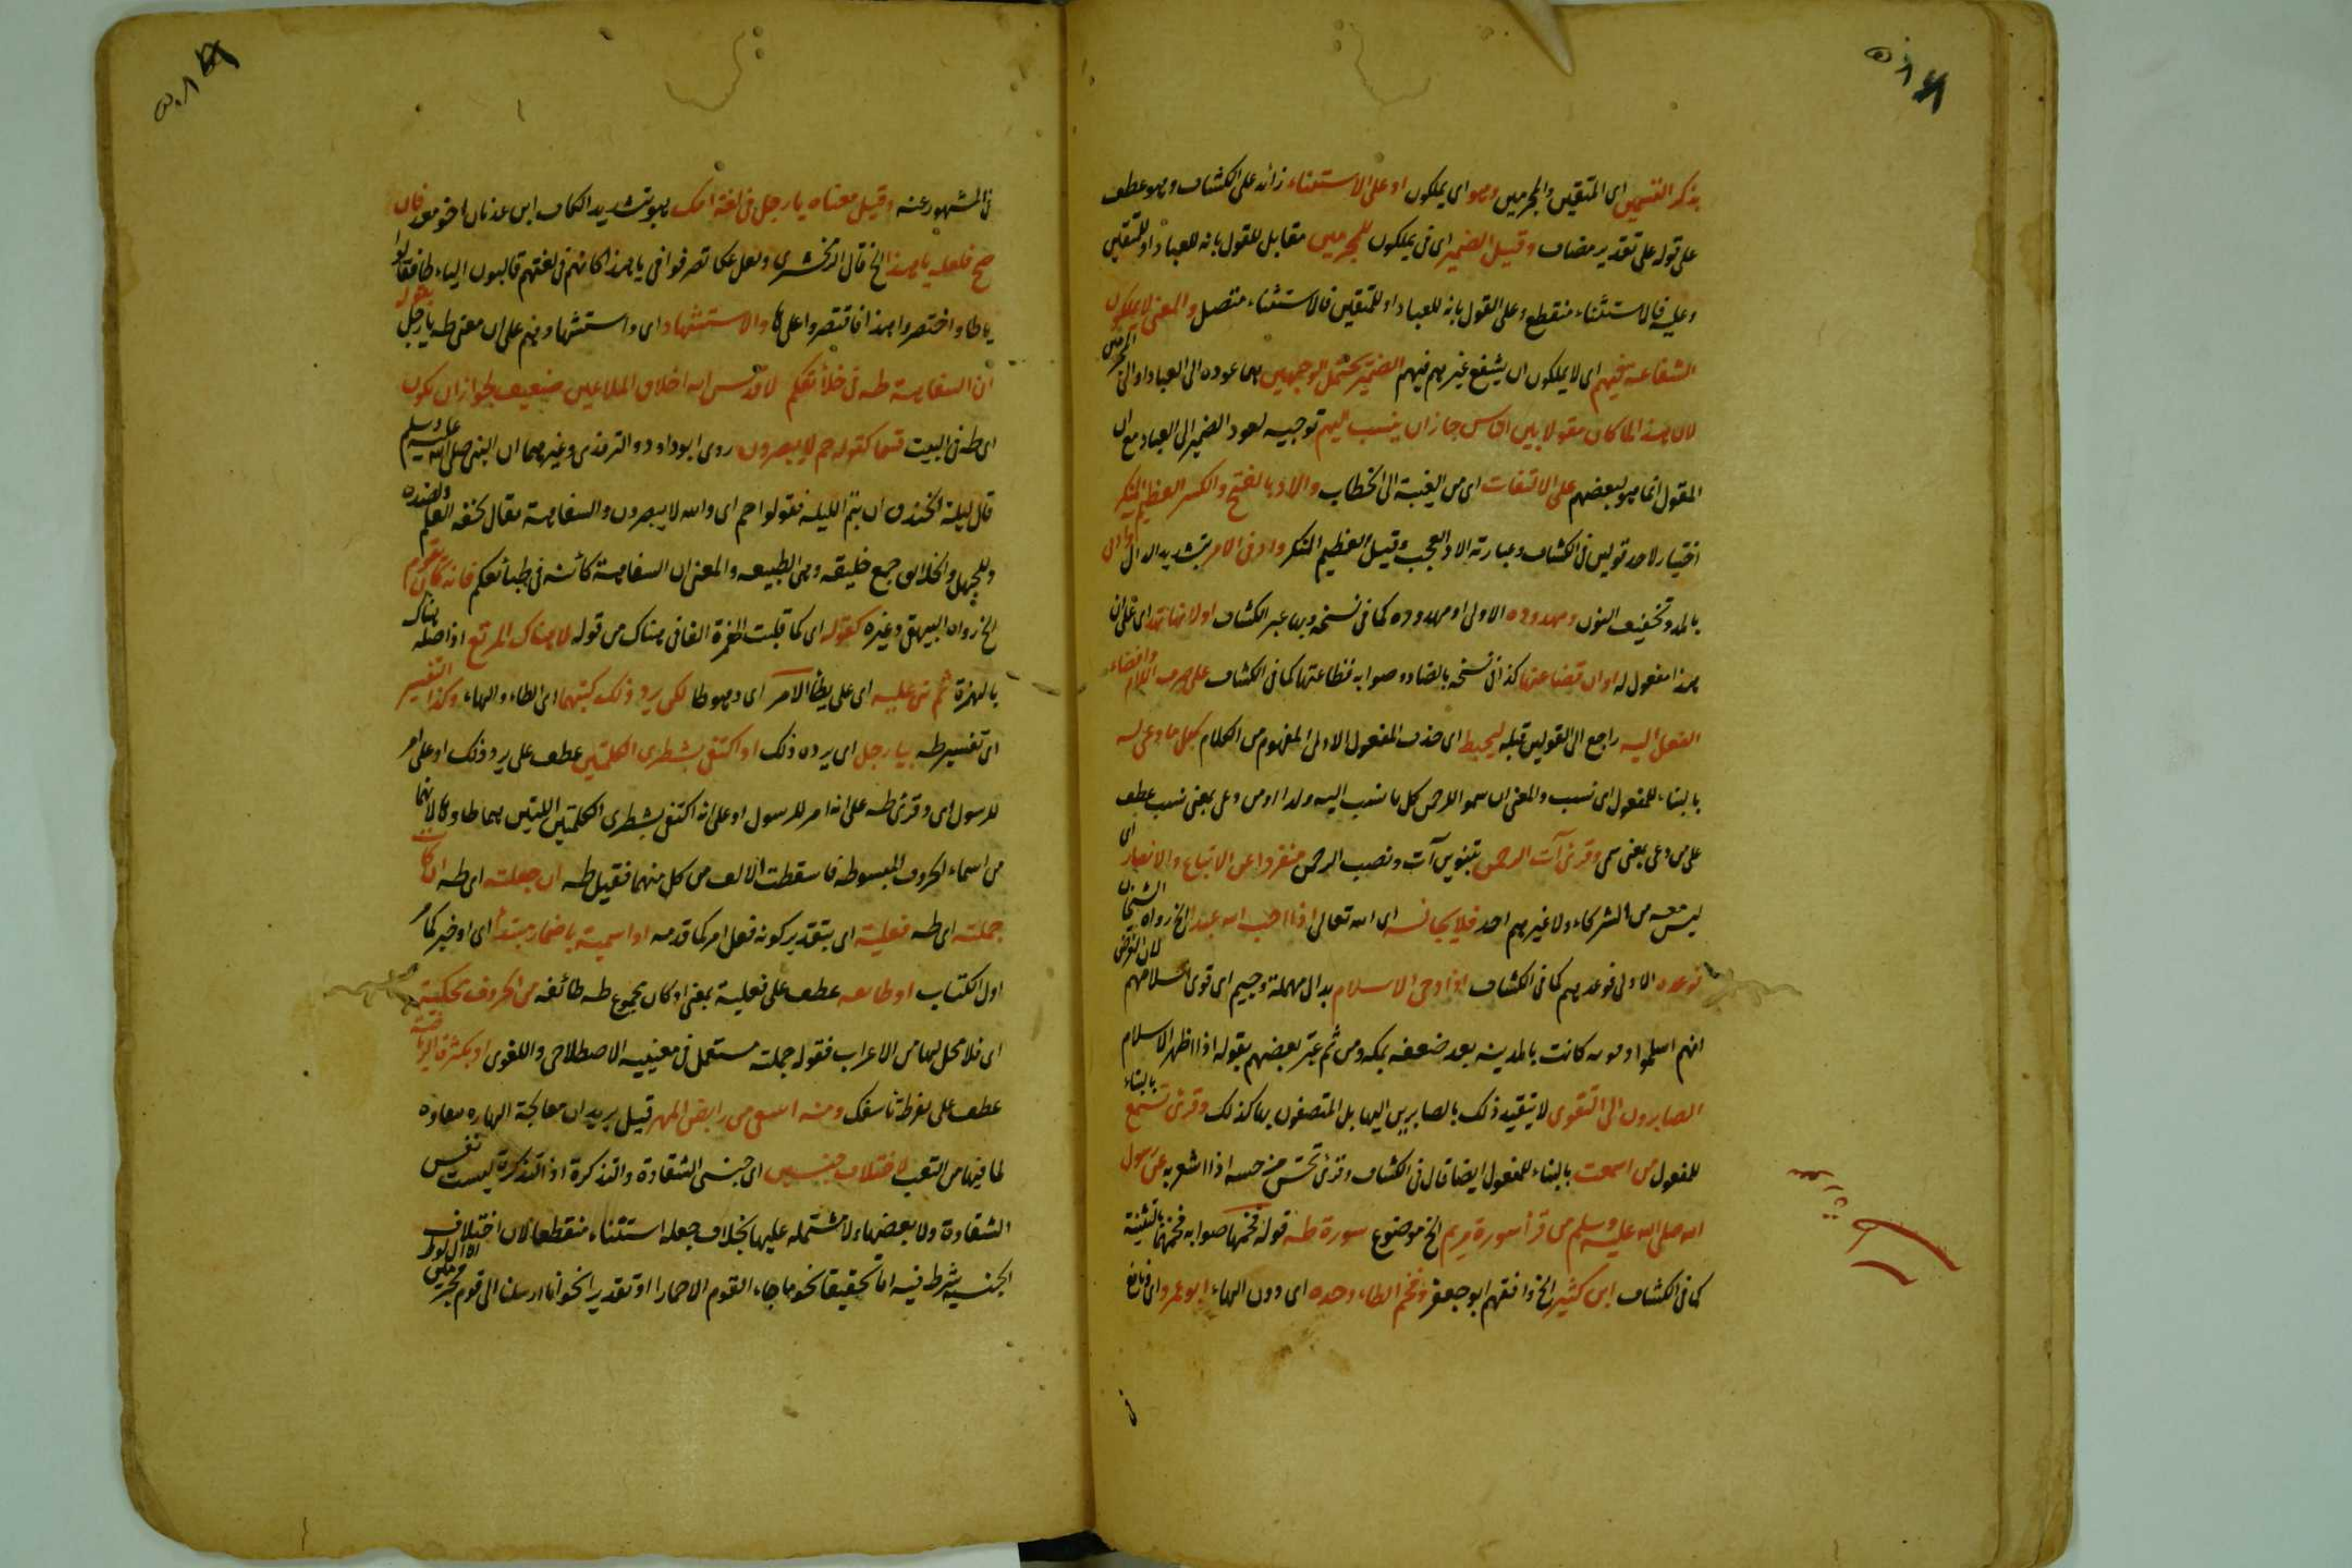 بذكر القسمين اى المتقين والمجرمين وهو اى يملكون او على الاستثناء زائد على الكشاف وهو عطف
على قوله على تقدير مضاف وقيل الضمير اى فى يملكون للمجرمين مقابل للقول بانه للعباد او للمتقين
وعليه فالاستثناء منقطع وعلى القول بانه للعباد او للمتقين فالاستثناء متصل والمعنى لا يملكون
الشفاعة فيهم اى لا يملكون ان يشفع غيرهم فيهم الضمير يحتمل الوجهين هما عوده الى العباد او الى المجرمين
لان هذا لما كان مقولا بين الناس جاز ان ينسب اليهم توجيه لعود الضمير الى العباد مع ان
المقول انما هو لبعضهم على الالتفات اى من الغيبة الى الخطاب والاد بالفتح والكسر العظيم المنكر
اختيار لاحد قولين فى الكشاف وعبارته الاد العجب وقيل العظيم المنكر وادنى الامر بتشديد الدال
بالمد وتخفيف النون ومهدوده الاولى او مهدوده كما فى نسخة وبها عبر الكشاف اولانها تهد اى على ان
هذا مفعول له او ان قضاعتها كذا فى نسخه بالضاد وصوابه فظاعتها كما فى الكشاف على حرف اللام وافضاء
الفعل اليه راجع الى القولين قبله ليحيط اى حذف المفعول الاول المفهوم من الكلام بكل ما دعى له
بالبناء للمفعول اى نسب والمعنى ان سموا للرحمن كل ما ينسب اليه ولدا او من دعى بمعنى نسب عطف
على من دعى بمعنى سمى وقرئ آت الرحمن بتنوين آت ونصب الرحمن منفردا عن الاتباع والانصار اى
ليس معه من الشركاء ولا غيرهم احد فلا يجانسه اى الله تعالى اذا احب الله عبدا الخ رواه الشيخان
فوعده الاولى فوعدهم كما فى الكشاف اذا دجى الاسلام بدال مهملة وجيم اى قوى اسلامهم لان الفرض
انهم اسلموا وقوته كانت بالمدينه بعد ضعفه بمكه ومن ثم عبر بعضهم بقوله اذا اظهر الاسلام
الصابرون الى التقوى لا يتقيد ذلك بالصابرين اليها بل المتصفون بها كذلك وقرئ تسمع بالبناء
للمفعول من اسمعت بالبناء للمفعول ايضا قال فى الكشاف وقرئ تحس من حسه اذا اشعر به عن رسول
الله صلى الله عليه وسلم من قرأ سورة مريم الخ موضوع سورة طه قوله فخمها صوابه فخمهما بالتثنية
كما فى الكشاف ابن كثير الخ وافقهم ابو جعفر وفخم الطاء وحده اى دون الهاء ابو عمرو اى ونافع
فى المشهور عنه وقيل معناه يا رجل فى لغة عك هو بتشديد الكاف ابن عدنان اخو معد فان
صح فلعله يا هذا الخ قال الزمخشرى ولعل عكا تصرفوا فى يا هذا كانهم فى لغتهم قالبون الياء طا فقالوا
يا طا واختصروا هذا فاقتصروا على ها والاستشهاد اى واستشهادهم على ان معنى طه يا رجل بقوله
ان السفاهة طه فى خلائقكم لا قدس الله اخلاق الملاعين ضعيف لجواز ان يكون
اى طه فى البيت قسما كقوله حم لا يبصرون روى ابو داود والترمذى وغيرهما ان النبى صلى الله عليه وسلم
قال ليلة الخندق ان بيتم الليلة فقولوا حم اى والله لا يبصرون والسفاهة يقال لخفه العقل ولضده
وللجهل والخلائق جمع خليقه وهى الطبيعه والمعنى ان السفاهة كائنه فى طبائعكم فانه كان يقوم
الخ رواه البيهقى وغيره كقوله اى كما قلبت الهمزة الفا فى هناك من قوله لا هناك المرتع اذ اصله هناك
بالهمزة ثم بنى عليه اى على يطأ الامر اى وهو طا لكن يرد ذلك كتبهما اى الطاء والهاء وكذا التفسير
اى تفسير طه بيا رجل اى يرده ذلك او اكتفى بشطرى الكلمتين عطف على يرد ذلك او على امر
للرسول اى وقرئ طه على انه امر للرسول او على انه اكتفى بشطرى الكلمتين اللتين هما طا وها لانهما
من اسماء الحروف المبسوطه فاسقطت الالف من كل منهما فقيل طه ان جعلته اى طه ان كانت
جملته اى طه فعلية اى بتقدير كونه فعل امر كما قدمه او اسمية باضمار مبتدأ اى او خبر كما مر
اول الكتاب او طائفه عطف على فعلية بمعنى او كان مجموع طه طائفه من الحروف محكية
اى فلا محل لها من الاعراب فقوله جملته مستعمل فى معنييه الاصطلاحى واللغوى او بكثرة الرياضة
عطف على بفرط تأسفك ومنه اشقى من رابض المهر قيل يريد ان معالجة المهاره شقاوه
لما فيها من التعب لاختلاف جنسين اى جنسى الشقاوة والتذكرة اذ التذكرة ليست نفس
الشقاوة ولا بعضها ولا مشتمله عليها بخلاف جعله استثناء منقطعا لان اختلاف
الجنسيه شرط فيه اما تحقيقا نحو ما جاء القوم الا حمارا او تقديرا نحو انا ارسلنا الى قوم مجرمين الا ال لوط